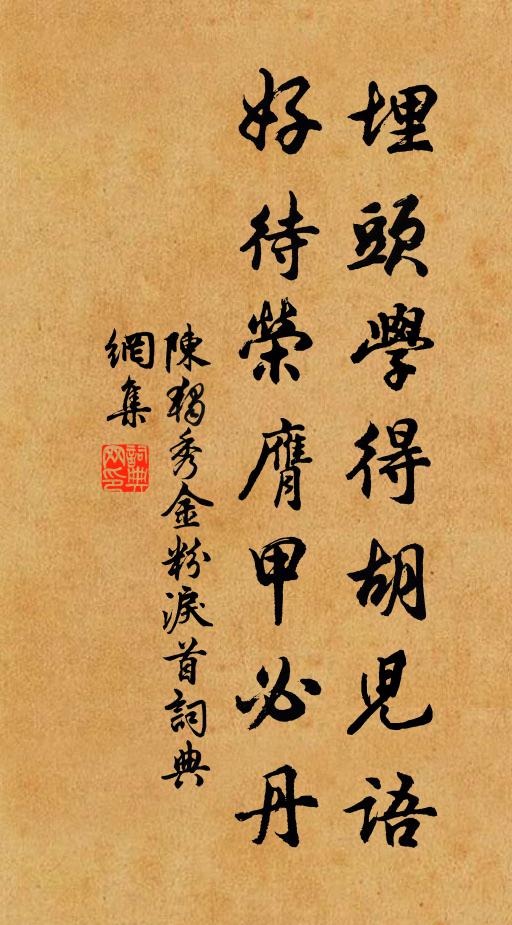 埋頭學得胡兒語
好待榮膺甲必丹
陳獨秀金粉淚首詞典
網集
詞典
網印